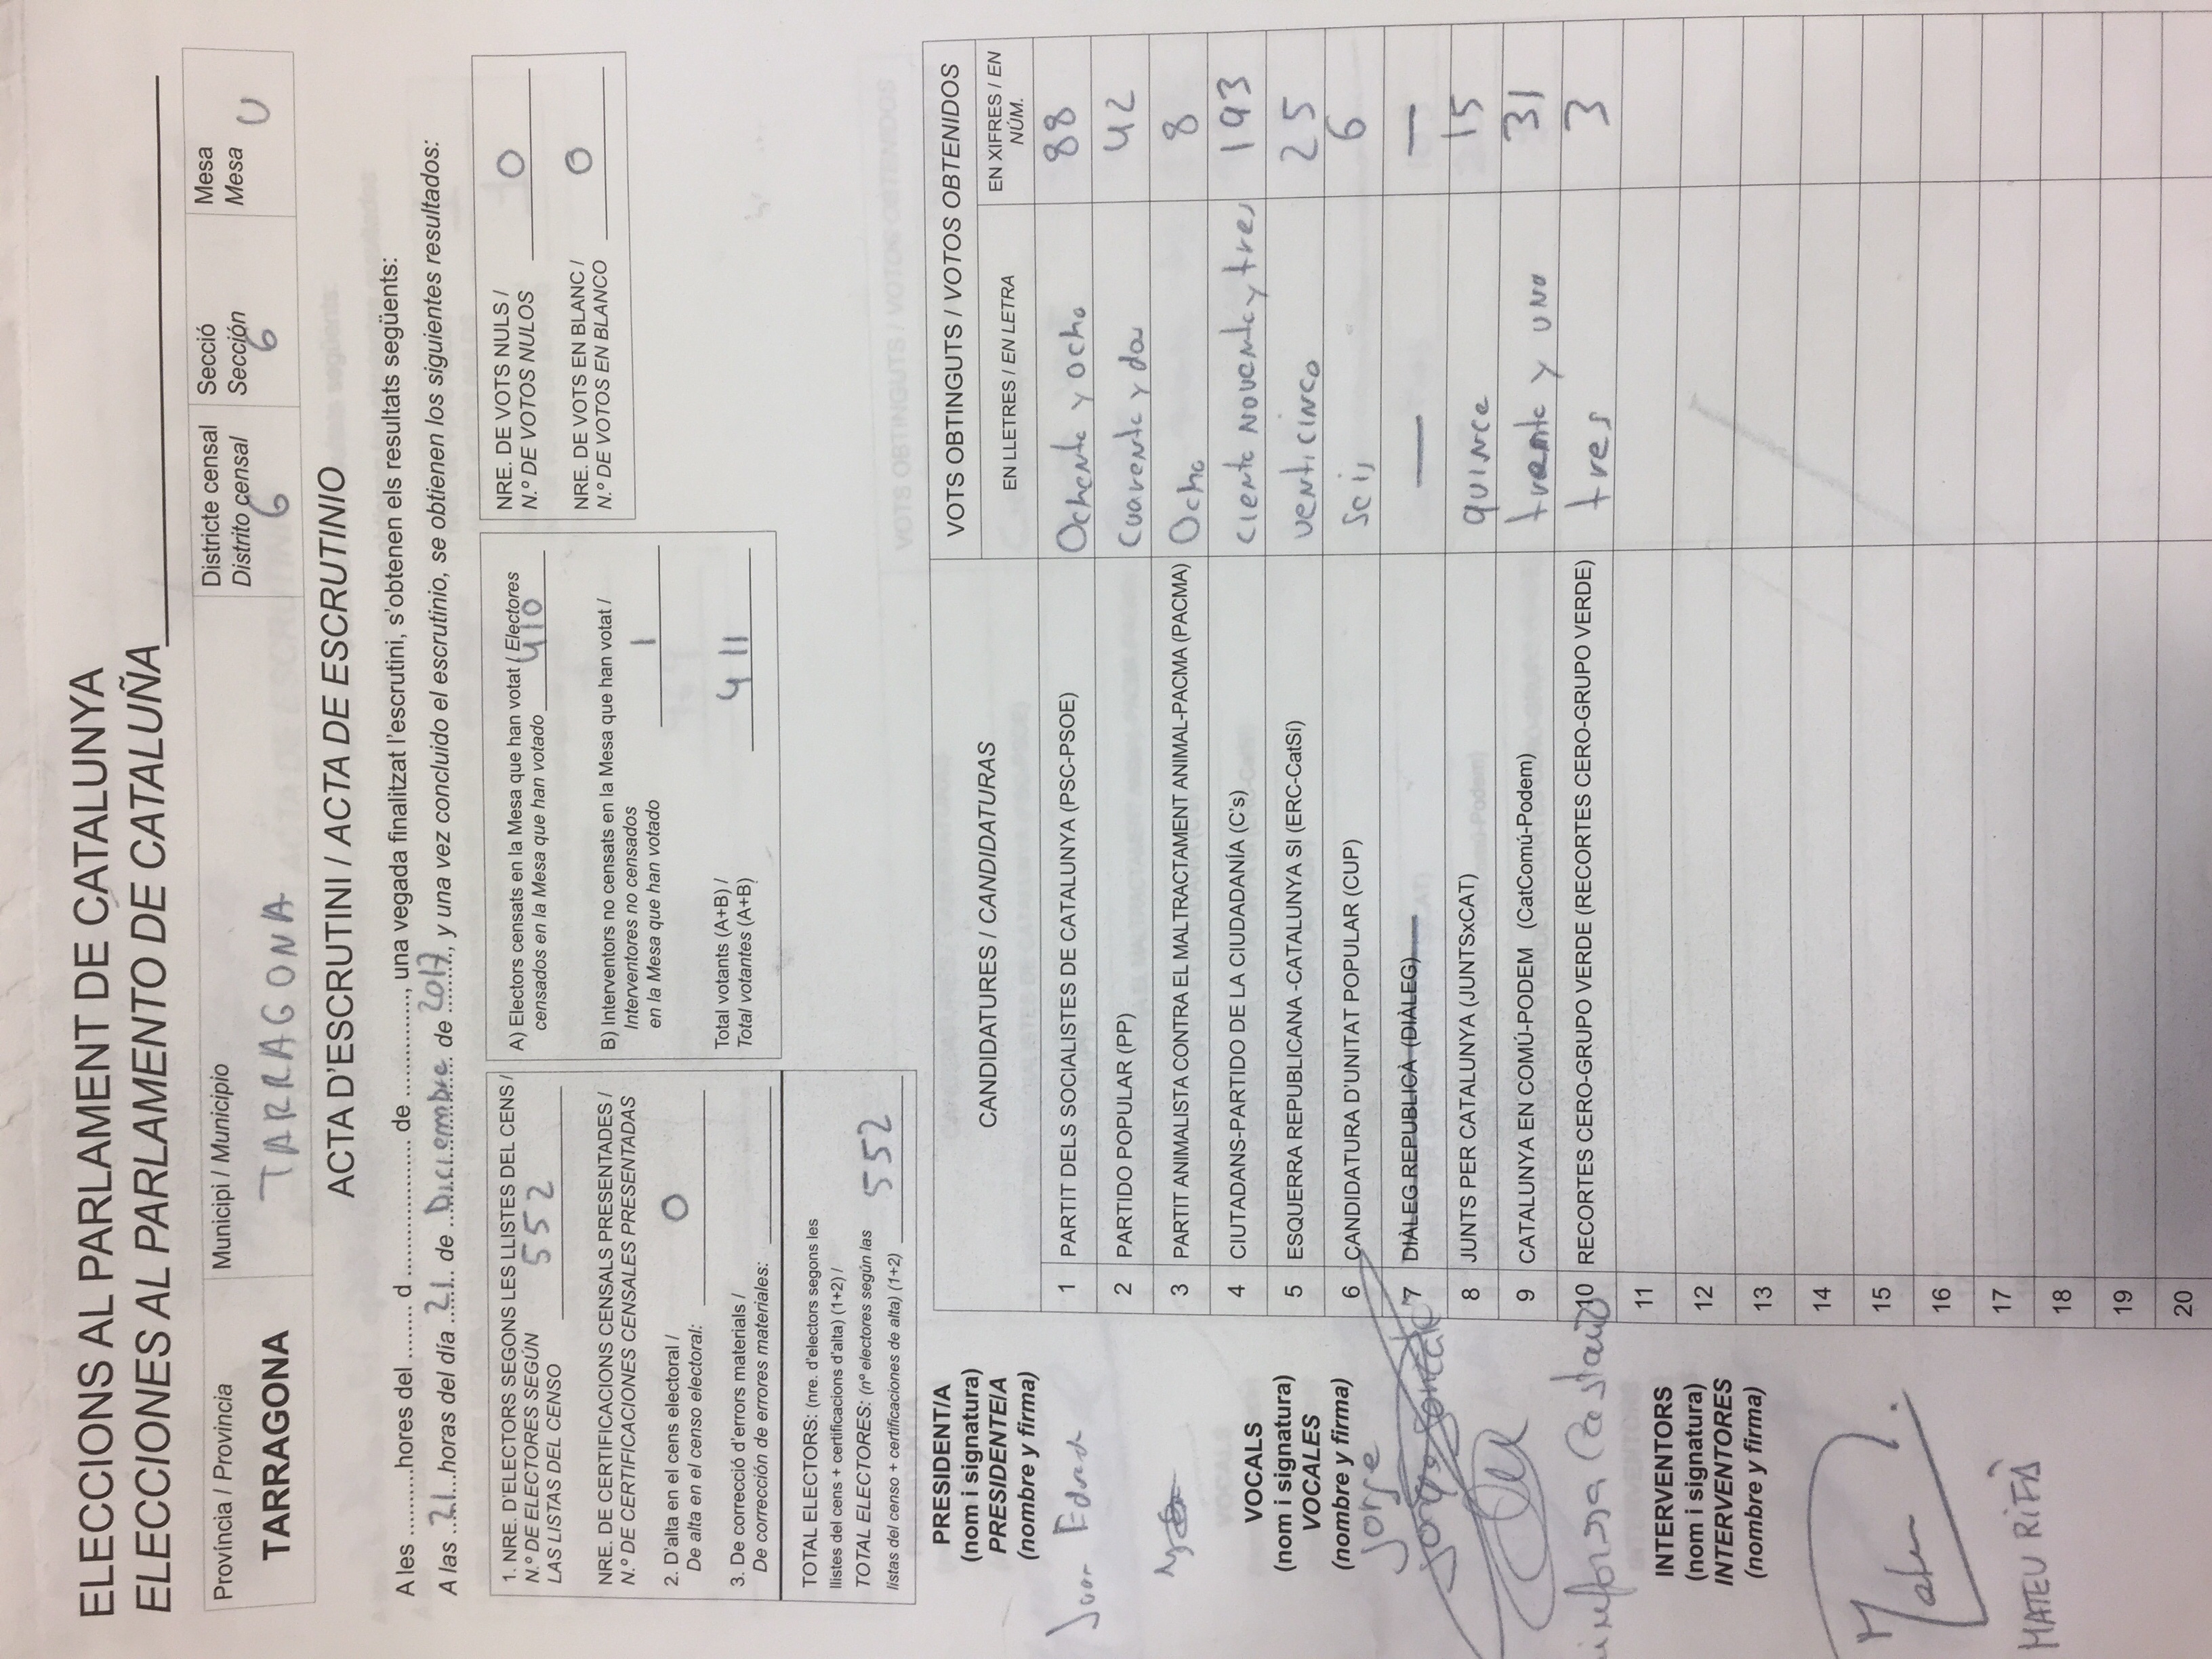 ELECCIONS AL PARLAMENT DE CATALUNYA
ELECCIONES AL PARLAMENTO DE CATALUÑA
Província / Provincia
TARRAGONA
Municipi / Municipio
TARRAGONA
Districte censal
Distrito censal
6
Secció
Sección
6
Mesa
Mesa
U
ACTA D'ESCRUTINI / ACTA DE ESCRUTINIO
A les ..........hores del ........ d ..................... de ..............., una vegada finalitzat l'escrutini, s'obtenen els resultats següents:
A las ..21...horas del día ..21.. de ..Diciembre. de .2017., y una vez concluido el escrutinio, se obtienen los siguientes resultados:
1. NRE. D'ELECTORS SEGONS LES LLISTES DEL CENS /
N.º DE ELECTORES SEGÚN
LAS LISTAS DEL CENSO 552
NRE. DE CERTIFICACIONS CENSALS PRESENTADES /
N.º DE CERTIFICACIONES CENSALES PRESENTADAS
2. D'alta en el cens electoral /
De alta en el censo electoral: 0
3. De correcció d'errors materials /
De corrección de errores materiales:
TOTAL ELECTORS: (nre. d'electors segons les
llistes del cens + certificacions d'alta) (1+2) /
TOTAL ELECTORES: (nº electores según las
listas del censo + certificaciones de alta) (1+2) 552
A) Electors censats en la Mesa que han votat / Electores
censados en la Mesa que han votado 410
B) Interventors no censats en la Mesa que han votat /
Interventores no censados
en la Mesa que han votado 1
Total votants (A+B) /
Total votantes (A+B) 411
NRE. DE VOTS NULS /
N.º DE VOTOS NULOS 0
NRE. DE VOTS EN BLANC /
N.º DE VOTOS EN BLANCO 0
PRESIDENT/A
(nom i signatura)
PRESIDENTE/A
(nombre y firma)
Juan Eduard
VOCALS
(nom i signatura)
VOCALES
(nombre y firma)
Jorge
Castaño
INTERVENTORS
(nom i signatura)
INTERVENTORES
(nombre y firma)
Mateu
MATEU RIFÀ
CANDIDATURES / CANDIDATURAS
VOTS OBTINGUTS / VOTOS OBTENIDOS
EN LLETRES / EN LETRA
EN XIFRES / EN
NÚM.
1 PARTIT DELS SOCIALISTES DE CATALUNYA (PSC-PSOE) Ochenta y ocho 88
2 PARTIDO POPULAR (PP) cuarenta y dos 42
3 PARTIT ANIMALISTA CONTRA EL MALTRACTAMENT ANIMAL-PACMA (PACMA) Ocho 8
4 CIUTADANS-PARTIDO DE LA CIUDADANÍA (C's) ciento noventa y tres 193
5 ESQUERRA REPUBLICANA -CATALUNYA SI (ERC-CatSí) venticinco 25
6 CANDIDATURA D'UNITAT POPULAR (CUP) seis 6
7 DIÀLEG REPUBLICÀ (DIÀLEG) — —
8 JUNTS PER CATALUNYA (JUNTSxCAT) quince 15
9 CATALUNYA EN COMÚ-PODEM (CatComú-Podem) trenta y uno 31
10 RECORTES CERO-GRUPO VERDE (RECORTES CERO-GRUPO VERDE) tres 3
11
12
13
14
15
16
17
18
19
20